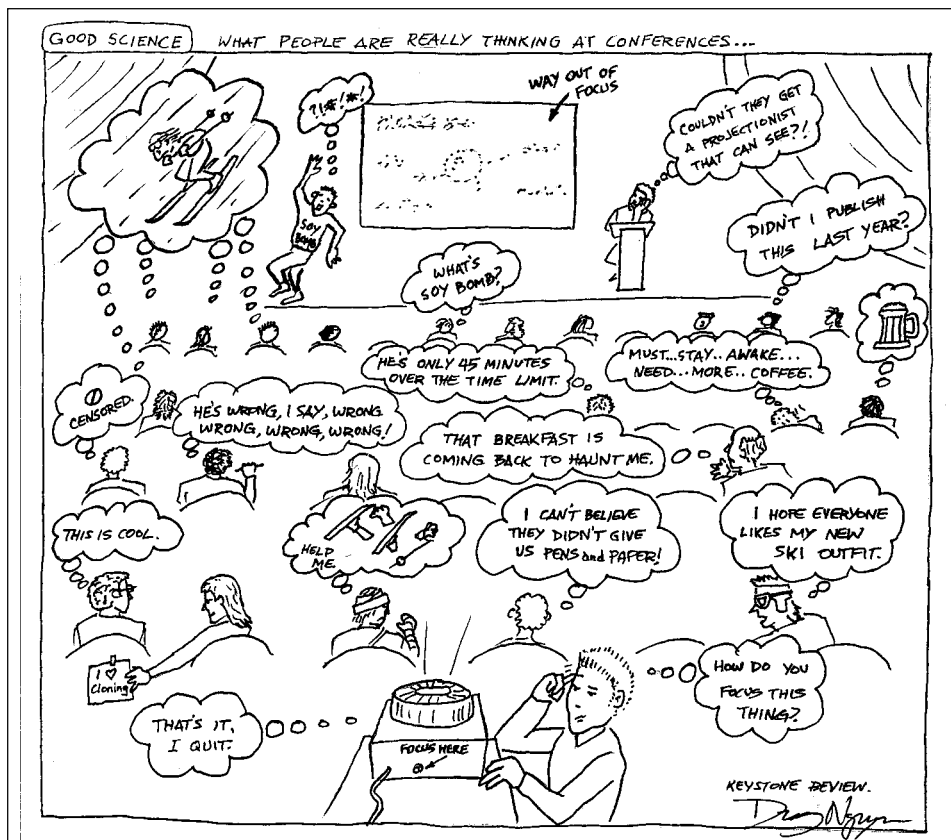 GOOD SCIENCE WHAT PEOPLE ARE REALLY THINKING AT CONFERENCES...
?!*!*!
WAY OUT OF
FOCUS
COULDN'T THEY GET
A PROJECTIONIST
THAT CAN SEE?!
SOY
BOMB
DIDN'T I PUBLISH
THIS LAST YEAR?
WHAT'S
SOY BOMB?
HE'S ONLY 45 MINUTES
OVER THE TIME LIMIT.
MUST...STAY..AWAKE...
NEED...MORE..COFFEE.
CENSORED.
HE'S WRONG, I SAY, WRONG
WRONG, WRONG, WRONG!
THAT BREAKFAST IS
COMING BACK TO HAUNT ME.
THIS IS COOL.
HELP
ME.
I CAN'T BELIEVE
THEY DIDN'T GIVE
US PENS and PAPER!
I HOPE EVERYONE
LIKES MY NEW
SKI OUTFIT.
I ♥
Cloning
HOW DO YOU
FOCUS THIS
THING?
THAT'S IT,
I QUIT.
FOCUS HERE
KEYSTONE REVIEW.